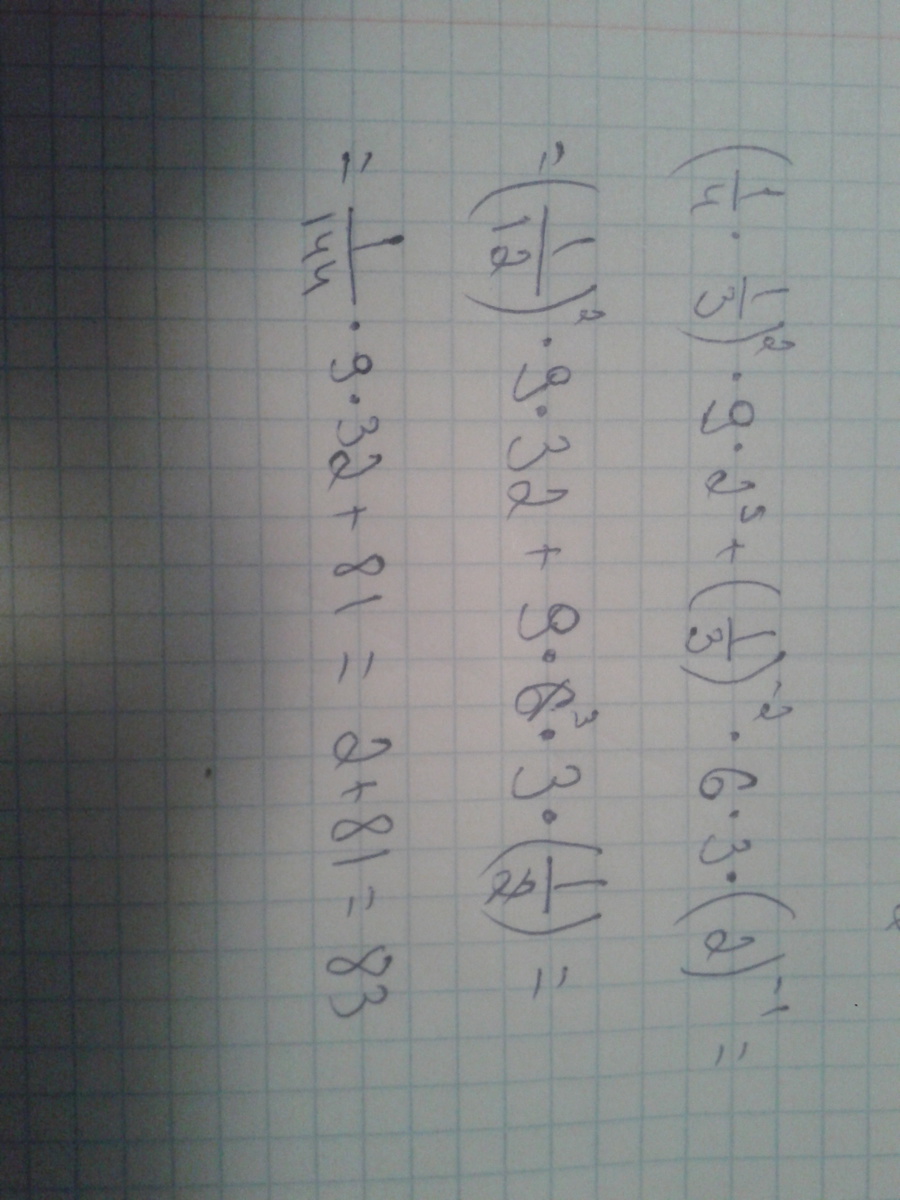 (1/4 · 1/3)² · 9 · 2⁵ + (1/3)⁻² · 6 · 3 · (2)⁻¹ =
= (1/12)² · 9 · 32 + 9 · 6³ · 3 · (1/2) =
= 1/144 · 9 · 32 + 81 = 2 + 81 = 83